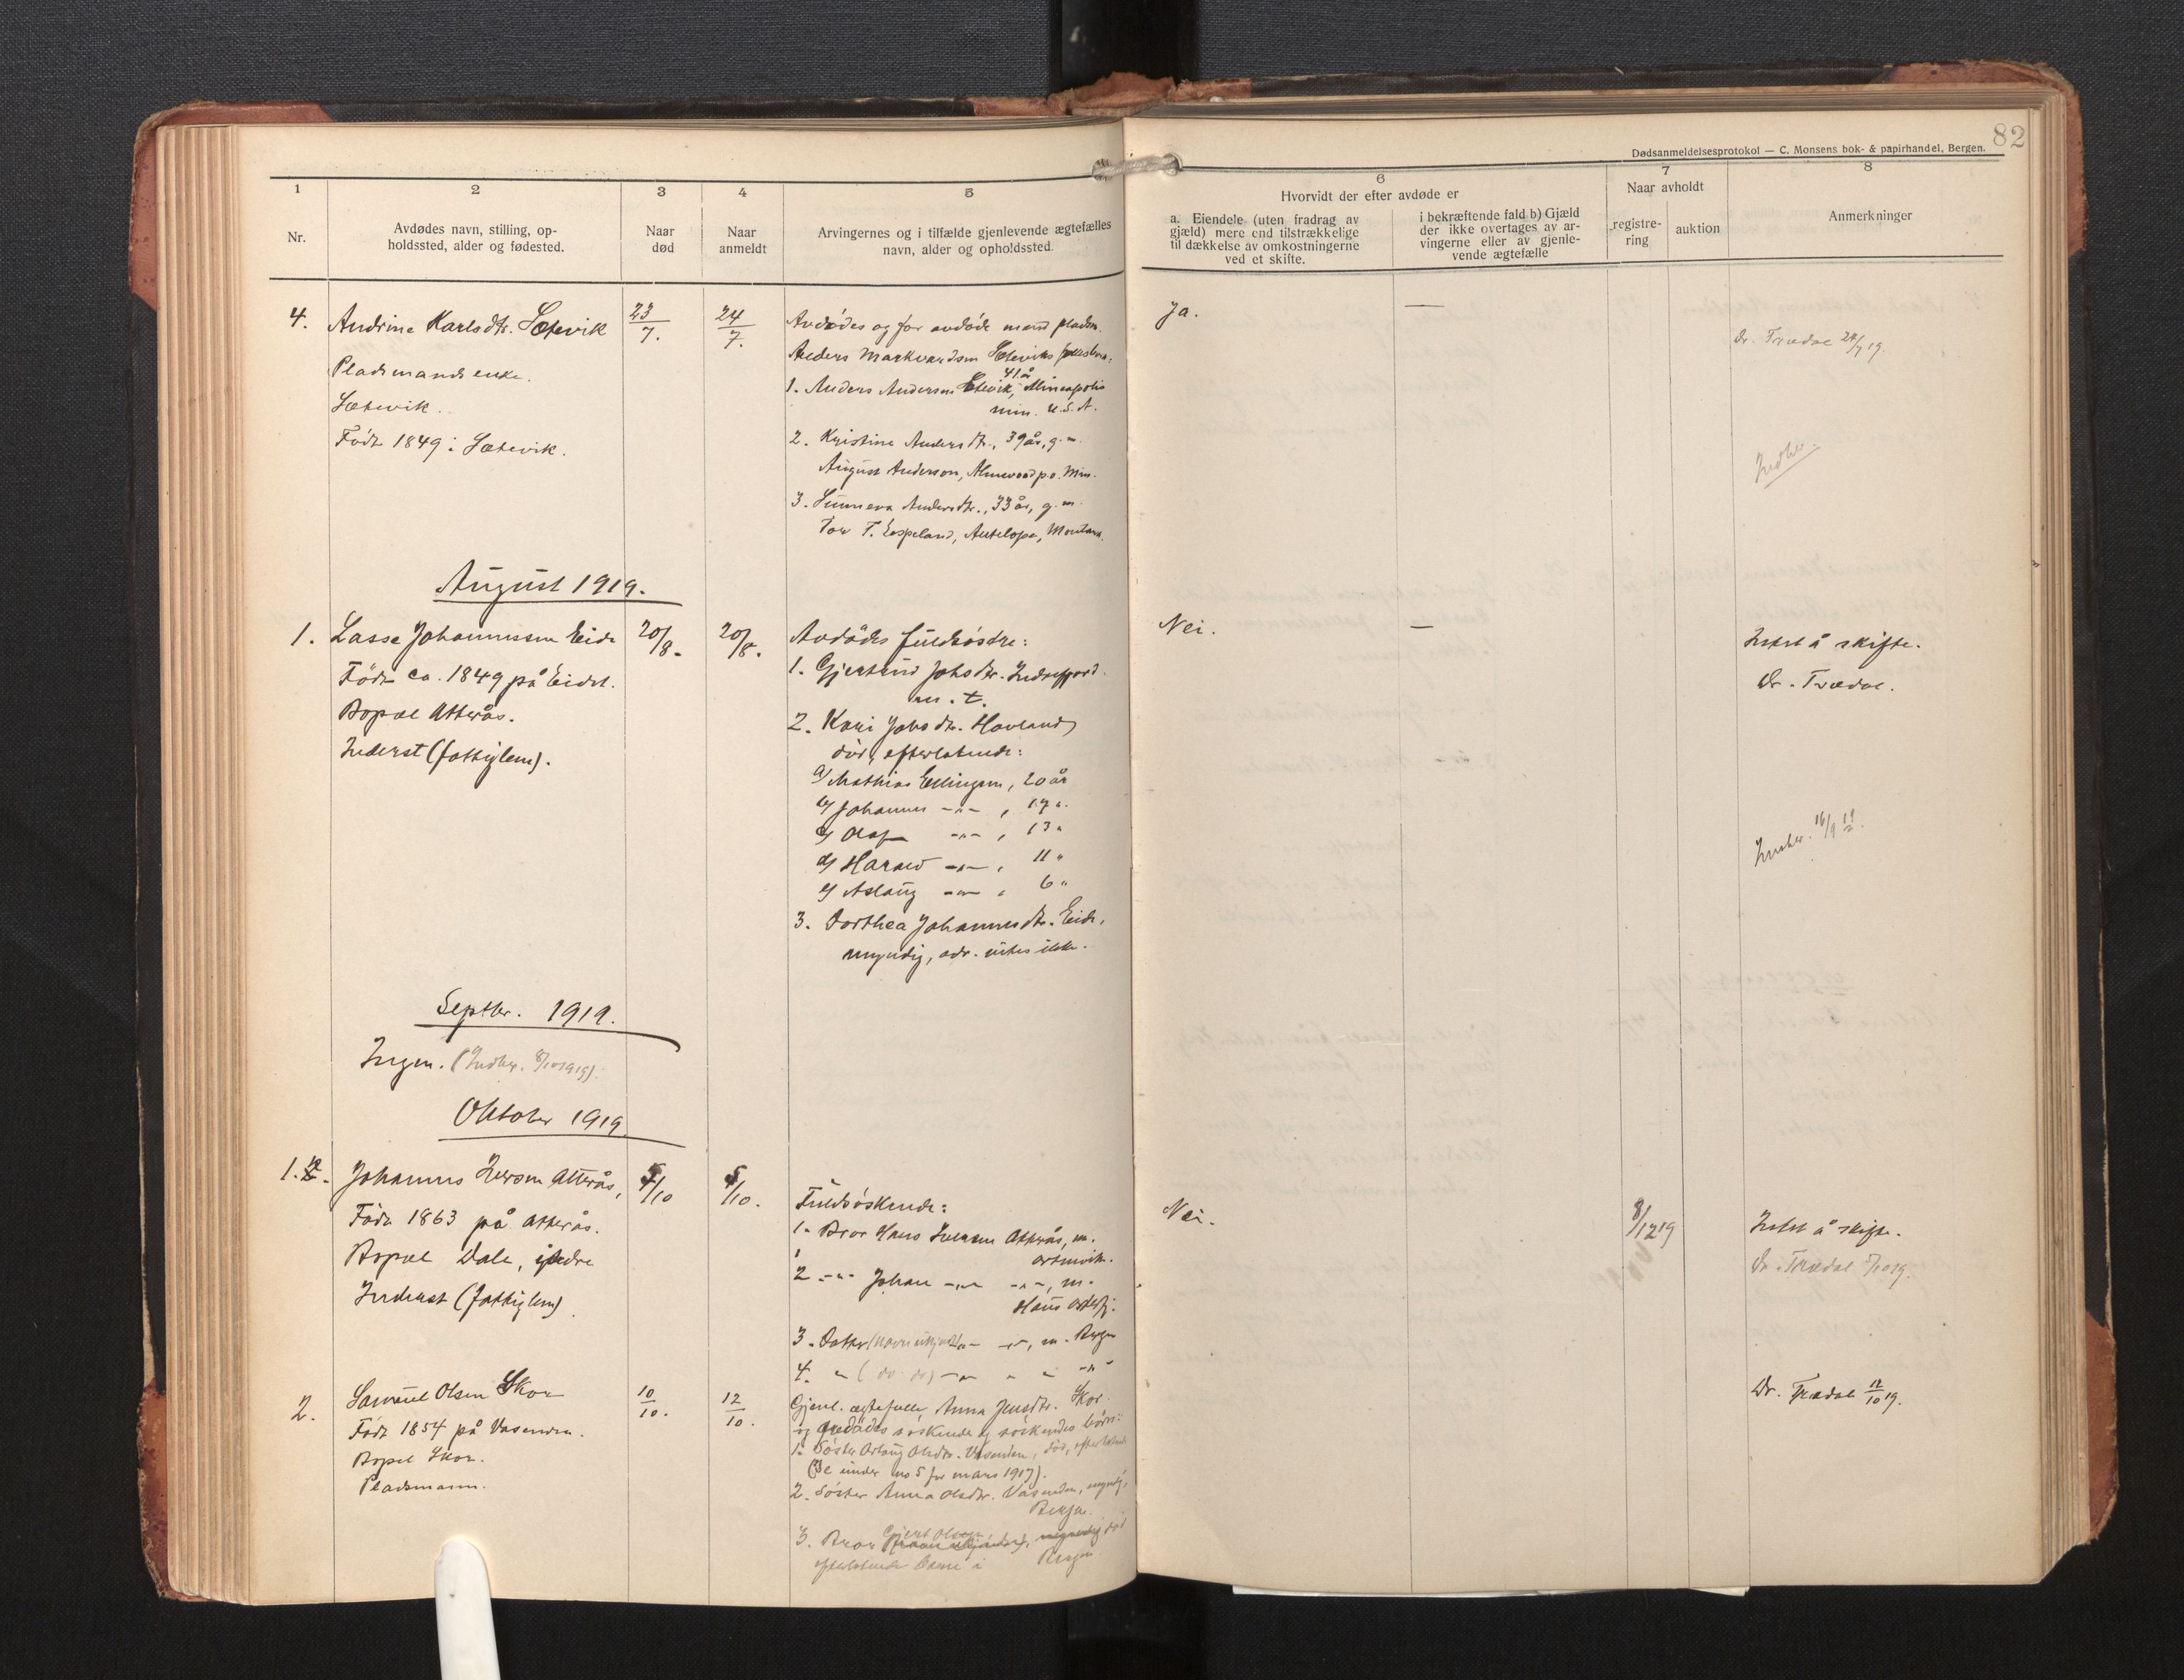 82
Dødsanmeldelsesprotokol — C. Monsens bok- & papirhandel, Bergen.
1
Nr.
2
Avdødes navn, stilling, op-
holdssted, alder og fødested.
3
Naar
død
4
Naar
anmeldt
5
Arvingernes og i tilfælde gjenlevende ægtefælles
navn, alder og opholdssted.
6
Hvorvidt der efter avdøde er
a. Eiendele (uten fradrag av
gjæld) mere end tilstrækkelige
til dækkelse av omkostningerne
ved et skifte.
i bekræftende fald b) Gjæld
der ikke overtages av ar-
vingerne eller av gjenle-
vende ægtefælle
7
Naar avholdt
registre-
ring
auktion
8
Anmerkninger
4. Andrine Karlsdtr. Sætevik
Pladsmands enke.
Sætevik.
Født 1849 i Sætevik.
23/7.
24/7.
Avdødes og før avdøde mand pladsm.
Anders Markvardsen Sæteviks
1. Anders Andersen Sætevik, 41 år Mineapolis
Min. U.S.A.
2. Kristine Andersdtr., 39 år, g. m.
August Anderson, p.o. Min.
3. Sunneva Andersdtr., 33 år, g. m.
Tor T. Espeland, Antelope, Montana.
Ja.
—
Dr. Trædal 24/7 19.
Indber.
August 1919.
1. Lasse Johannessen Eide
Født ca. 1849 på Eidet.
Bopæl Atterås.
Inderst (fattiglem).
20/8.
20/8.
Avdødes fuldsøstre:
1. Gjertrud Johsdtr. Indrefjord.
2. Kari Johsdtr. Hovland
død, efterlatende:
a) Mathias Ellingsen, 20 år
b) Johannes -"- , 17 "
c) Olaf -"- , 13 "
d) Harald -"- , 11 "
e) Aslaug -"- , 6 "
3. Dorthea Johannesdtr. Eide,
myndig, adr. vites ikke.
Nei.
—
Intet å skifte.
Dr. Trædal.
Indber. 16/9 19
Septbr. 1919.
Ingen. (Indber. 8/10 1919).
Oktober 1919.
1. Johannes Iversen Atterås,
Født 1863 på Atterås.
Bopæl Dale, indre
Inderst (fattiglem).
5/10
5/10.
Fuldsøskende:
1. Bror Hans Iversen Atterås, m.
2 -"- Johan -"- -"-, m.
3. -"- -"-, m. Bergen
4. " (do do) -"- " " -"-
Nei.
8/12 19
Intet å skifte.
Dr. Trædal 5/10 19.
2. Samuel Olsen Skor
Født 1854 på Vasenden.
Bopæl Skor.
Pladsmann.
10/10.
12/10.
Gjenl. ægtefælle Anna Jensdtr. Skor
og avdødes søskende og søskendes børn:
1. Søster Olsdtr. Vasenden, død, efterlatende
(Se under no 5 for mars 1917).
2. Søster Anna Olsdtr. Vasenden, myndig,
Bergen.
3. Bror Gjert Olsen død
efterlatende børn i Bergen.
Dr. Trædal 12/10 19.